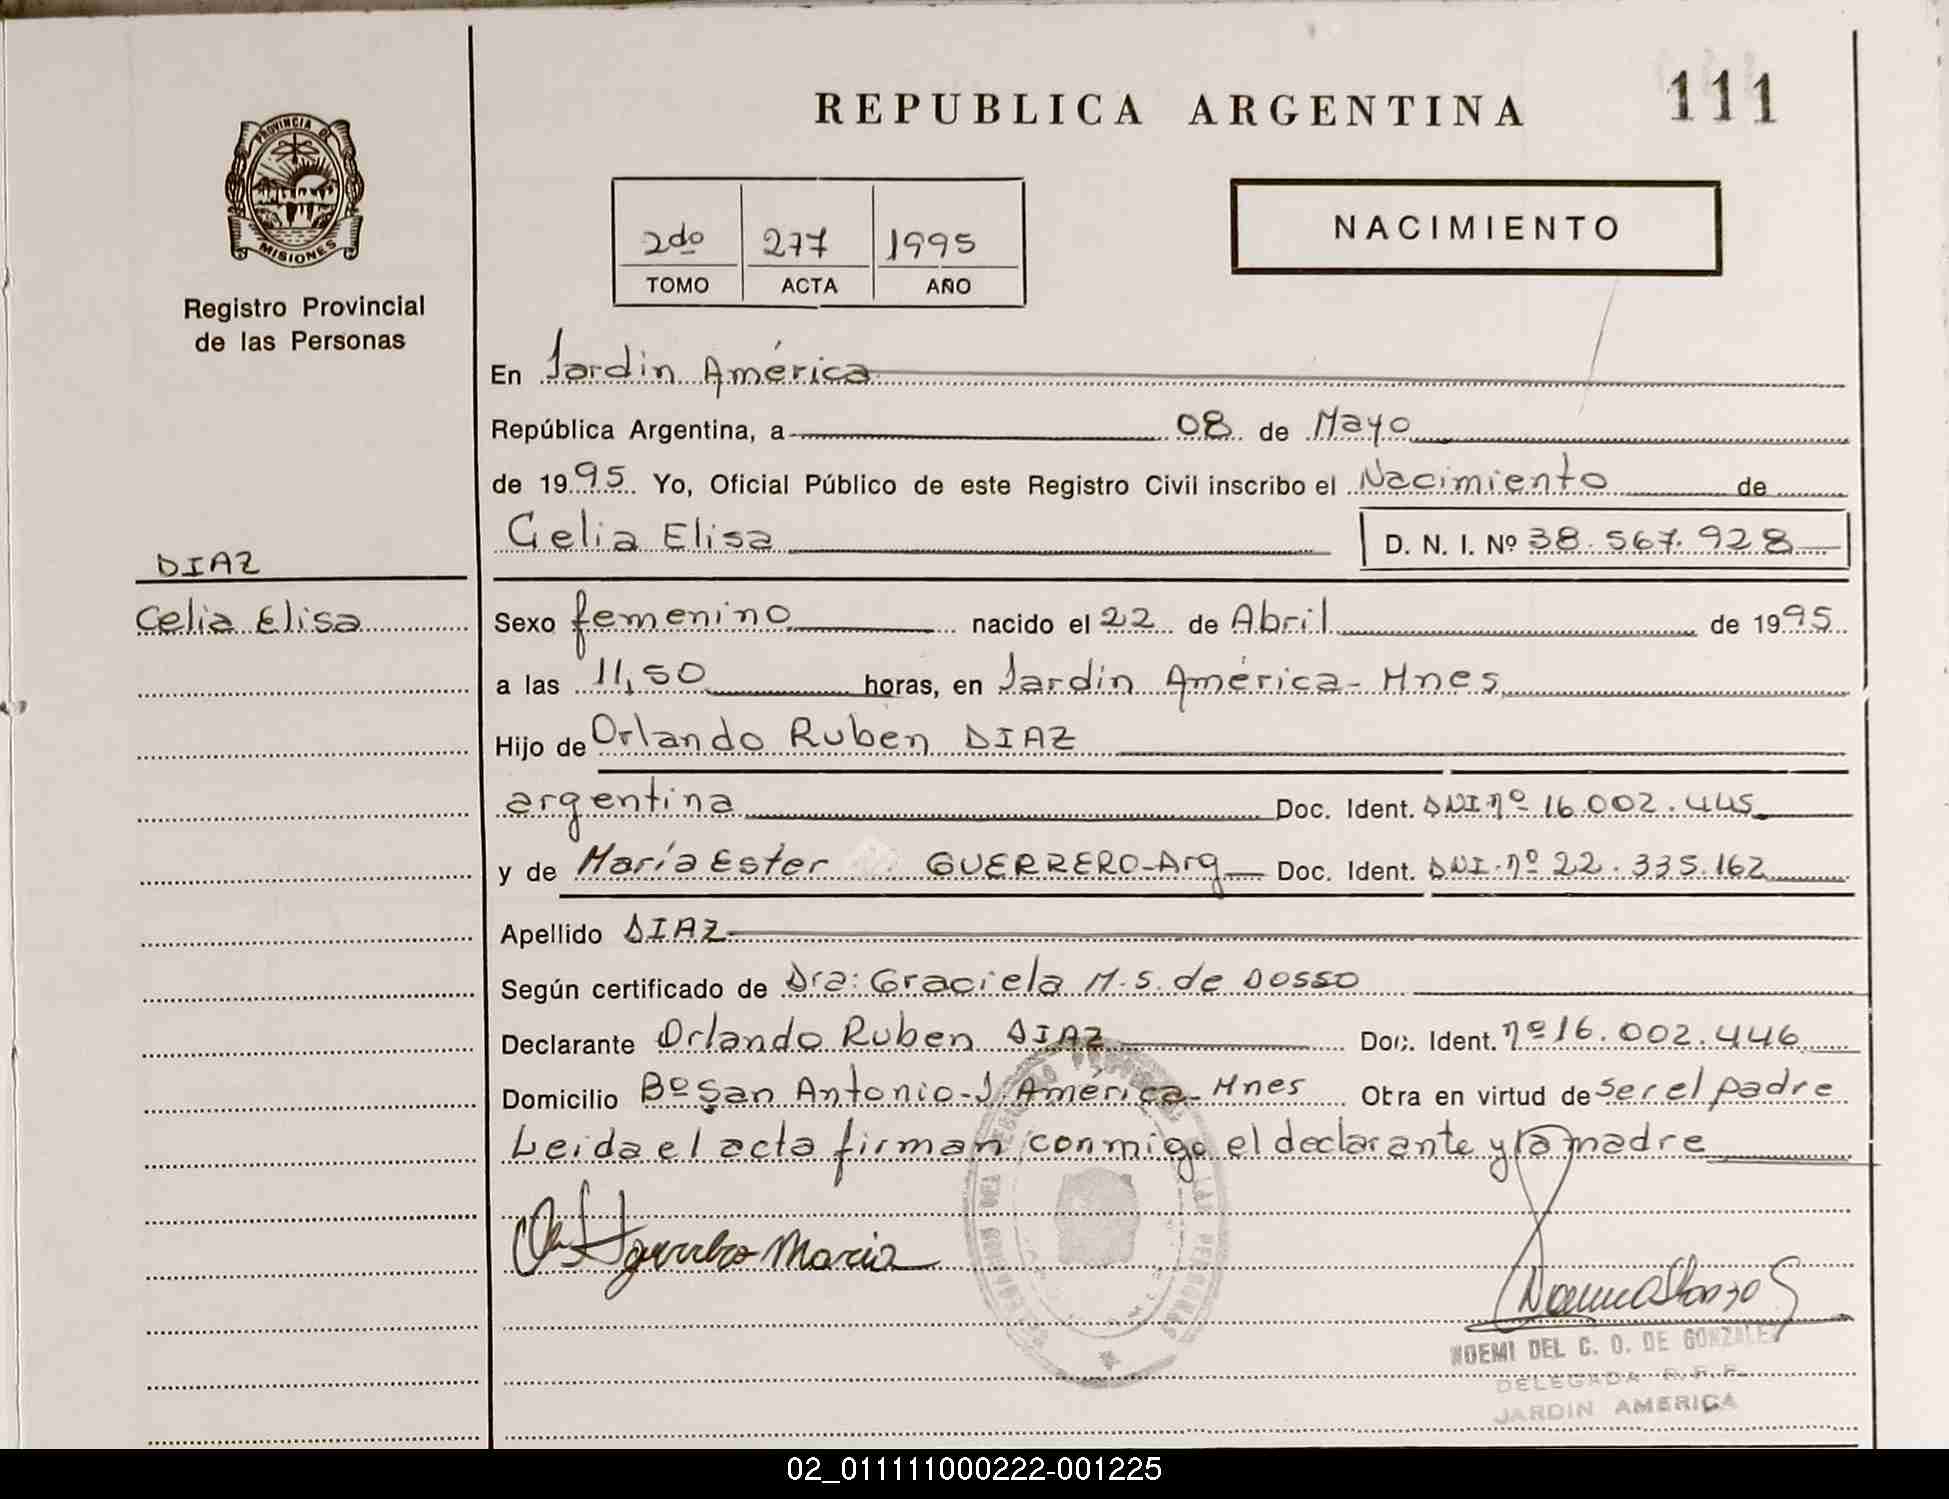 REPUBLICA ARGENTINA
111
PROVINCIA DE
MISIONES
Registro Provincial
de las Personas
2do 277 1995
TOMO ACTA AÑO
NACIMIENTO
En Jardin América
República Argentina, a 08 de Mayo
de 1995 Yo, Oficial Público de este Registro Civil inscribo el Nacimiento de
Celia Elisa D. N. I. Nº 38.567.928
DIAZ
Celia Elisa
Sexo femenino nacido el 22 de Abril de 1995
a las 11,50 horas, en Jardin América - Mnes
Hijo de Orlando Ruben DIAZ
argentina Doc. Ident. DNI nº 16.002.445
y de María Ester GUERRERO-Arg Doc. Ident. DNI. nº 22.335.162
Apellido DIAZ
Según certificado de Dra: Graciela M.S. de Dosso
Declarante Orlando Ruben DIAZ Doc. Ident. nº 16.002.446
Domicilio Bº San Antonio-J. América-Mnes Otra en virtud de ser el padre
Leida el acta firman conmigo el declarante y la madre
Maria
NOEMI DEL C. O. DE GONZALEZ
DELEGADA R.P.P.
JARDIN AMERICA
02_011111000222-001225